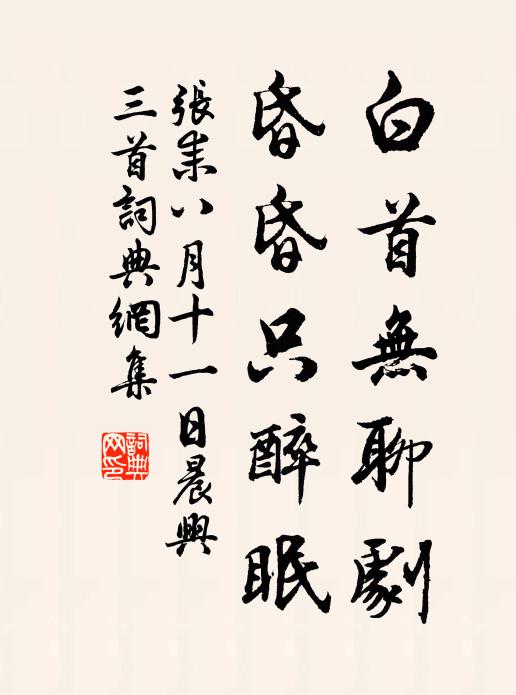 白首無聊劇
昏昏只醉眠
張耒八月十一日晨興
三首詞典網集
詞典網印